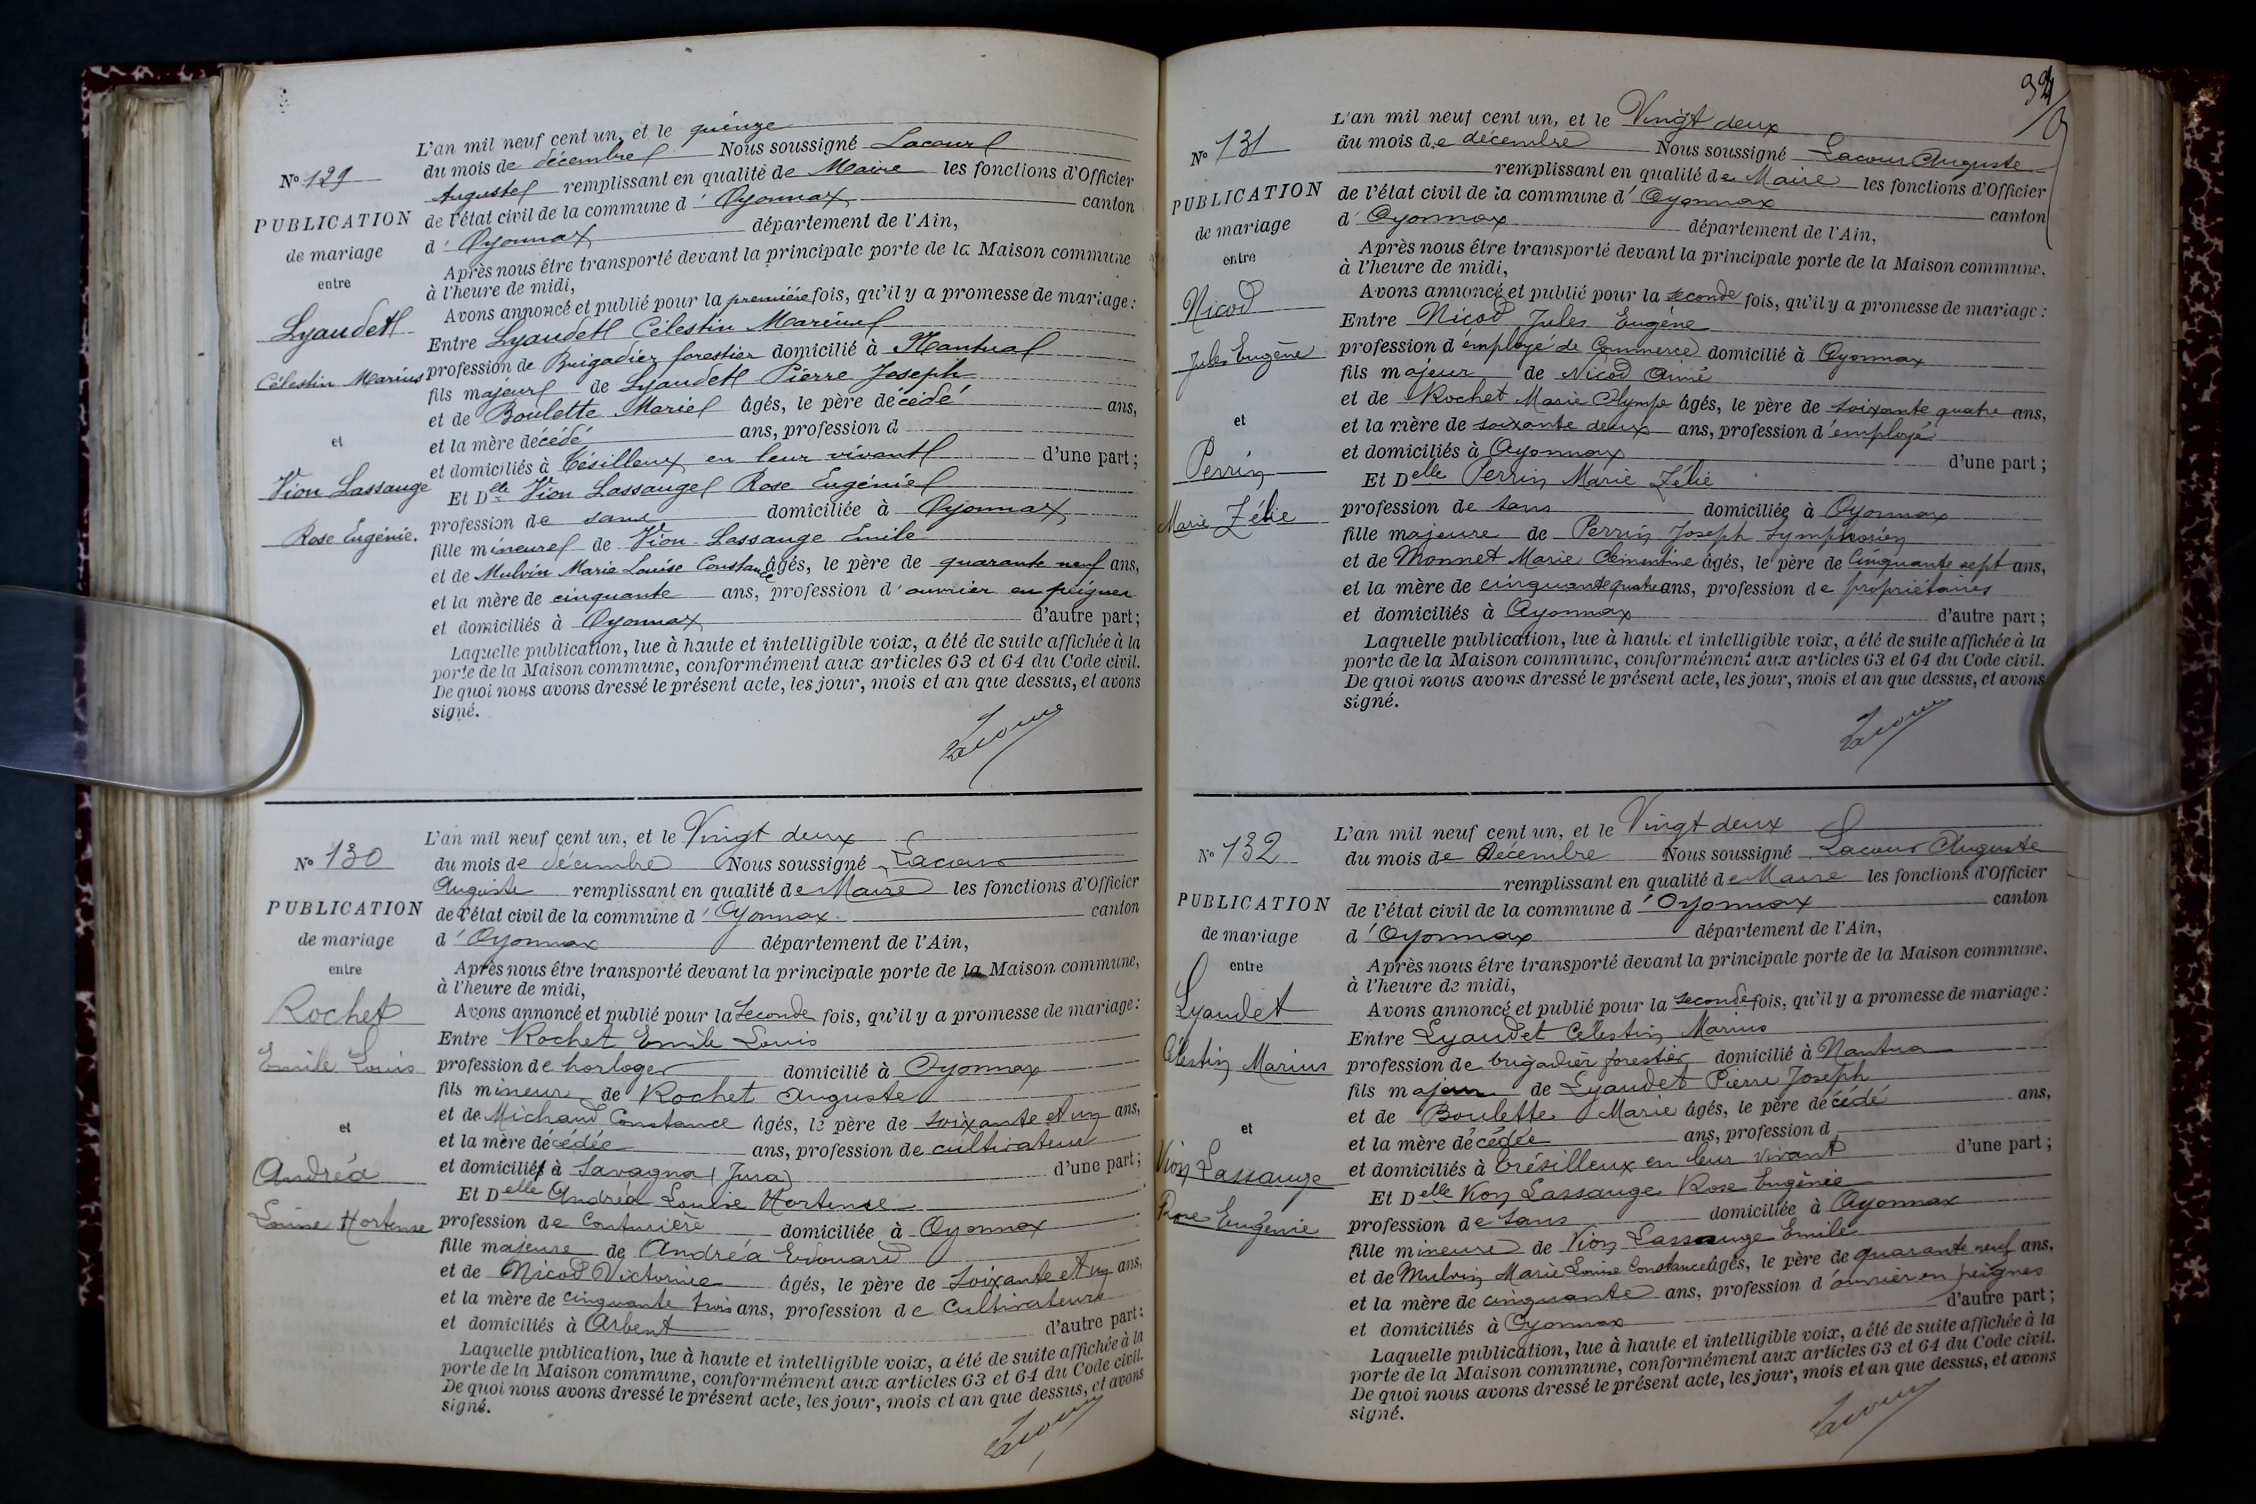 L'an mil neuf cent un, et le quinze
du mois de décembre Nous soussigné Lacour
Auguste remplissant en qualité de Maire les fonctions d'Officier
de l'état civil de la commune d'Oyonnax canton
d'Oyonnax département de l'Ain,
Après nous être transporté devant la principale porte de la Maison commune
à l'heure de midi,
Avons annoncé et publié pour la première fois, qu'il y a promesse de mariage :
Entre Lyaudet Célestin Marius
profession de Brigadier forestier domicilié à Nantua
fils majeur de Lyaudet Pierre Joseph
et de Boulette Marie âgés, le père de décédé ans,
et la mère de décédé ans, profession d
et domiciliés à Trésilleux en leur vivant d'une part ;
Et Delle Vion Lassauge Rose Eugénie
profession de sans domiciliée à Oyonnax
fille mineure de Vion Lassauge Emile
et de Mulvin Marie Louise Constance âgés, le père de quarante neuf ans,
et la mère de cinquante ans, profession d'ouvrier en peignes
et domiciliés à Oyonnax d'autre part ;
Laquelle publication, lue à haute et intelligible voix, a été de suite affichée à la
porte de la Maison commune, conformément aux articles 63 et 64 du Code civil.
De quoi nous avons dressé le présent acte, les jour, mois et an que dessus, et avons
signé.
Lacour
N° 129
PUBLICATION
de mariage
entre
Lyaudet
Célestin Marius
et
Vion Lassauge
Rose Eugénie.
L'an mil neuf cent un, et le Vingt deux
du mois de décembre Nous soussigné Lacour
Auguste remplissant en qualité de Maire les fonctions d'Officier
de l'état civil de la commune d'Oyonnax canton
d'Oyonnax département de l'Ain,
Après nous être transporté devant la principale porte de la Maison commune,
à l'heure de midi,
Avons annoncé et publié pour la seconde fois, qu'il y a promesse de mariage :
Entre Rochet Emile Louis
profession de horloger domicilié à Oyonnax
fils mineur de Rochet Auguste
et de Michaud Constance âgés, le père de soixante et un ans,
et la mère décédée ans, profession de cultivateur
et domiciliés à Savagna (Jura) d'une part ;
Et Delle Andréa Louise Hortense
profession de Couturière domiciliée à Oyonnax
fille majeure de Andréa Edouard
et de Nicod Victorine âgés, le père de soixante et un ans,
et la mère de cinquante trois ans, profession de Cultivateurs
et domiciliés à Arbent d'autre part ;
Laquelle publication, lue à haute et intelligible voix, a été de suite affichée à la
porte de la Maison commune, conformément aux articles 63 et 64 du Code civil.
De quoi nous avons dressé le présent acte, les jour, mois et an que dessus, et avons
signé.
Lacour
N° 130
PUBLICATION
de mariage
entre
Rochet
Emile Louis
et
Andréa
Louise Hortense
L'an mil neuf cent un, et le Vingt deux
du mois de décembre Nous soussigné Lacour Auguste
remplissant en qualité de Maire les fonctions d'Officier
de l'état civil de la commune d'Oyonnax canton
d'Oyonnax département de l'Ain,
Après nous être transporté devant la principale porte de la Maison commune,
à l'heure de midi,
Avons annoncé et publié pour la seconde fois, qu'il y a promesse de mariage :
Entre Nicod Jules Eugène
profession d'employé de Commerce domicilié à Oyonnax
fils majeur de Nicod Aimé
et de Rochet Marie Olympe âgés, le père de soixante quatre ans,
et la mère de soixante deux ans, profession d'employé
et domiciliés à Oyonnax d'une part ;
Et Delle Perrin Marie Zélie
profession de sans domiciliée à Oyonnax
fille majeure de Perrin Joseph Symphorien
et de Monnet Marie Clémentine âgés, le père de Cinquante sept ans,
et la mère de cinquante quatre ans, profession de propriétaires
et domiciliés à Oyonnax d'autre part ;
Laquelle publication, lue à haute et intelligible voix, a été de suite affichée à la
porte de la Maison commune, conformément aux articles 63 et 64 du Code civil.
De quoi nous avons dressé le présent acte, les jour, mois et an que dessus, et avons
signé.
Lacour
N° 131
PUBLICATION
de mariage
entre
Nicod
Jules Eugène
et
Perrin
Marie Zélie
L'an mil neuf cent un, et le Vingt deux
du mois de Décembre Nous soussigné Lacour Auguste
remplissant en qualité de Maire les fonctions d'Officier
de l'état civil de la commune d'Oyonnax canton
d'Oyonnax département de l'Ain,
Après nous être transporté devant la principale porte de la Maison commune,
à l'heure de midi,
Avons annoncé et publié pour la seconde fois, qu'il y a promesse de mariage :
Entre Lyaudet Célestin Marius
profession de brigadier forestier domicilié à Nantua
fils majeur de Lyaudet Pierre Joseph
et de Boulette Marie âgés, le père décédé ans,
et la mère décédée ans, profession d
et domiciliés à Trésilleux en leur vivant d'une part ;
Et Delle Vion Lassauge Rose Eugénie
profession de sans domiciliée à Oyonnax
fille mineure de Vion Lassauge Emile
et de Mulvin Marie Louise Constance âgés, le père de quarante neuf ans,
et la mère de cinquante ans, profession d'ouvrier en peignes
et domiciliés à Oyonnax d'autre part ;
Laquelle publication, lue à haute et intelligible voix, a été de suite affichée à la
porte de la Maison commune, conformément aux articles 63 et 64 du Code civil.
De quoi nous avons dressé le présent acte, les jour, mois et an que dessus, et avons
signé.
Lacour
N° 132
PUBLICATION
de mariage
entre
Lyaudet
Célestin Marius
et
Vion Lassauge
Rose Eugénie